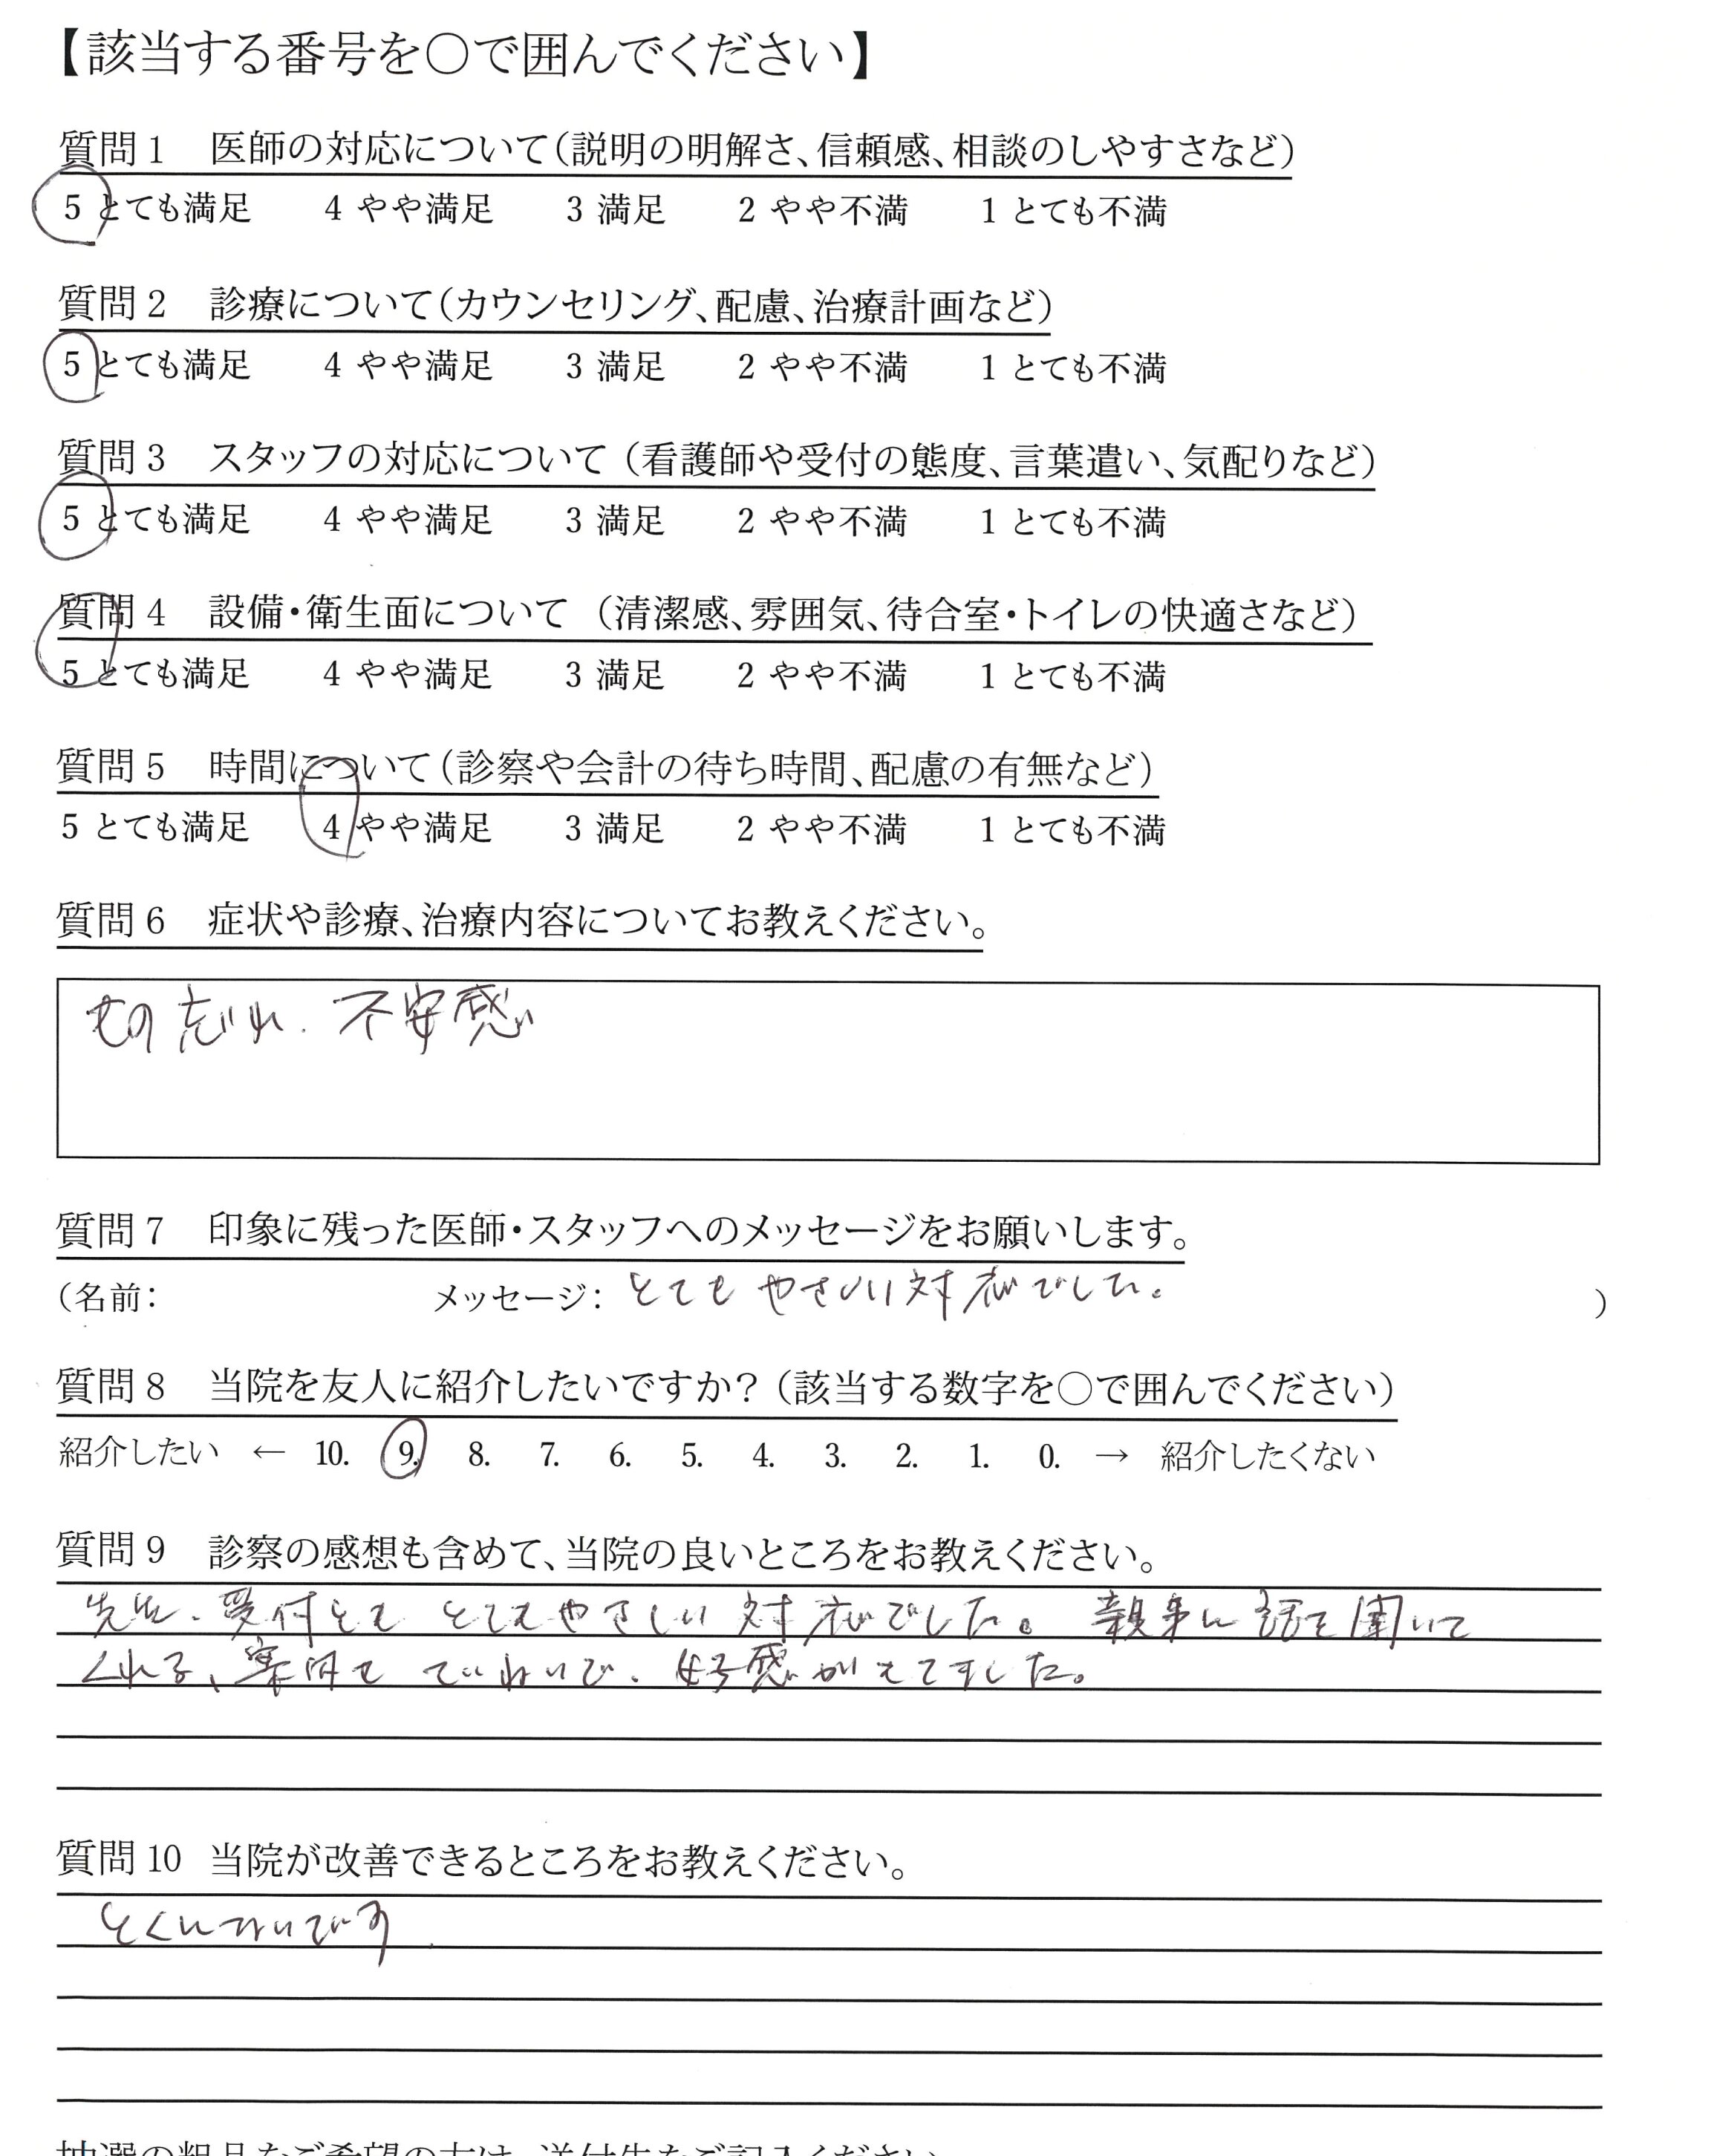 【該当する番号を○で囲んでください】
質問1 医師の対応について(説明の明解さ、信頼感、相談のしやすさなど)
5 とても満足 4 やや満足 3 満足 2 やや不満 1 とても不満
質問2 診療について(カウンセリング、配慮、治療計画など)
5 とても満足 4 やや満足 3 満足 2 やや不満 1 とても不満
質問3 スタッフの対応について (看護師や受付の態度、言葉遣い、気配りなど)
5 とても満足 4 やや満足 3 満足 2 やや不満 1 とても不満
質問4 設備・衛生面について (清潔感、雰囲気、待合室・トイレの快適さなど)
5 とても満足 4 やや満足 3 満足 2 やや不満 1 とても不満
質問5 時間について(診察や会計の待ち時間、配慮の有無など)
5 とても満足 4 やや満足 3 満足 2 やや不満 1 とても不満
質問6 症状や診療、治療内容についてお教えください。
もの忘れ、不安感
質問7 印象に残った医師・スタッフへのメッセージをお願いします。
(名前: メッセージ: とてもやさしい対応でした。 )
質問8 当院を友人に紹介したいですか? (該当する数字を○で囲んでください)
紹介したい ← 10. 9. 8. 7. 6. 5. 4. 3. 2. 1. 0. → 紹介したくない
質問9 診察の感想も含めて、当院の良いところをお教えください。
先生、受付とも とてもやさしい対応でした。親身に話を聞いて
くれる、案内も ていねいで、好感がもてました。
質問10 当院が改善できるところをお教えください。
とくにないです
抽選の粗品をご希望の方は、送付先をご記入ください